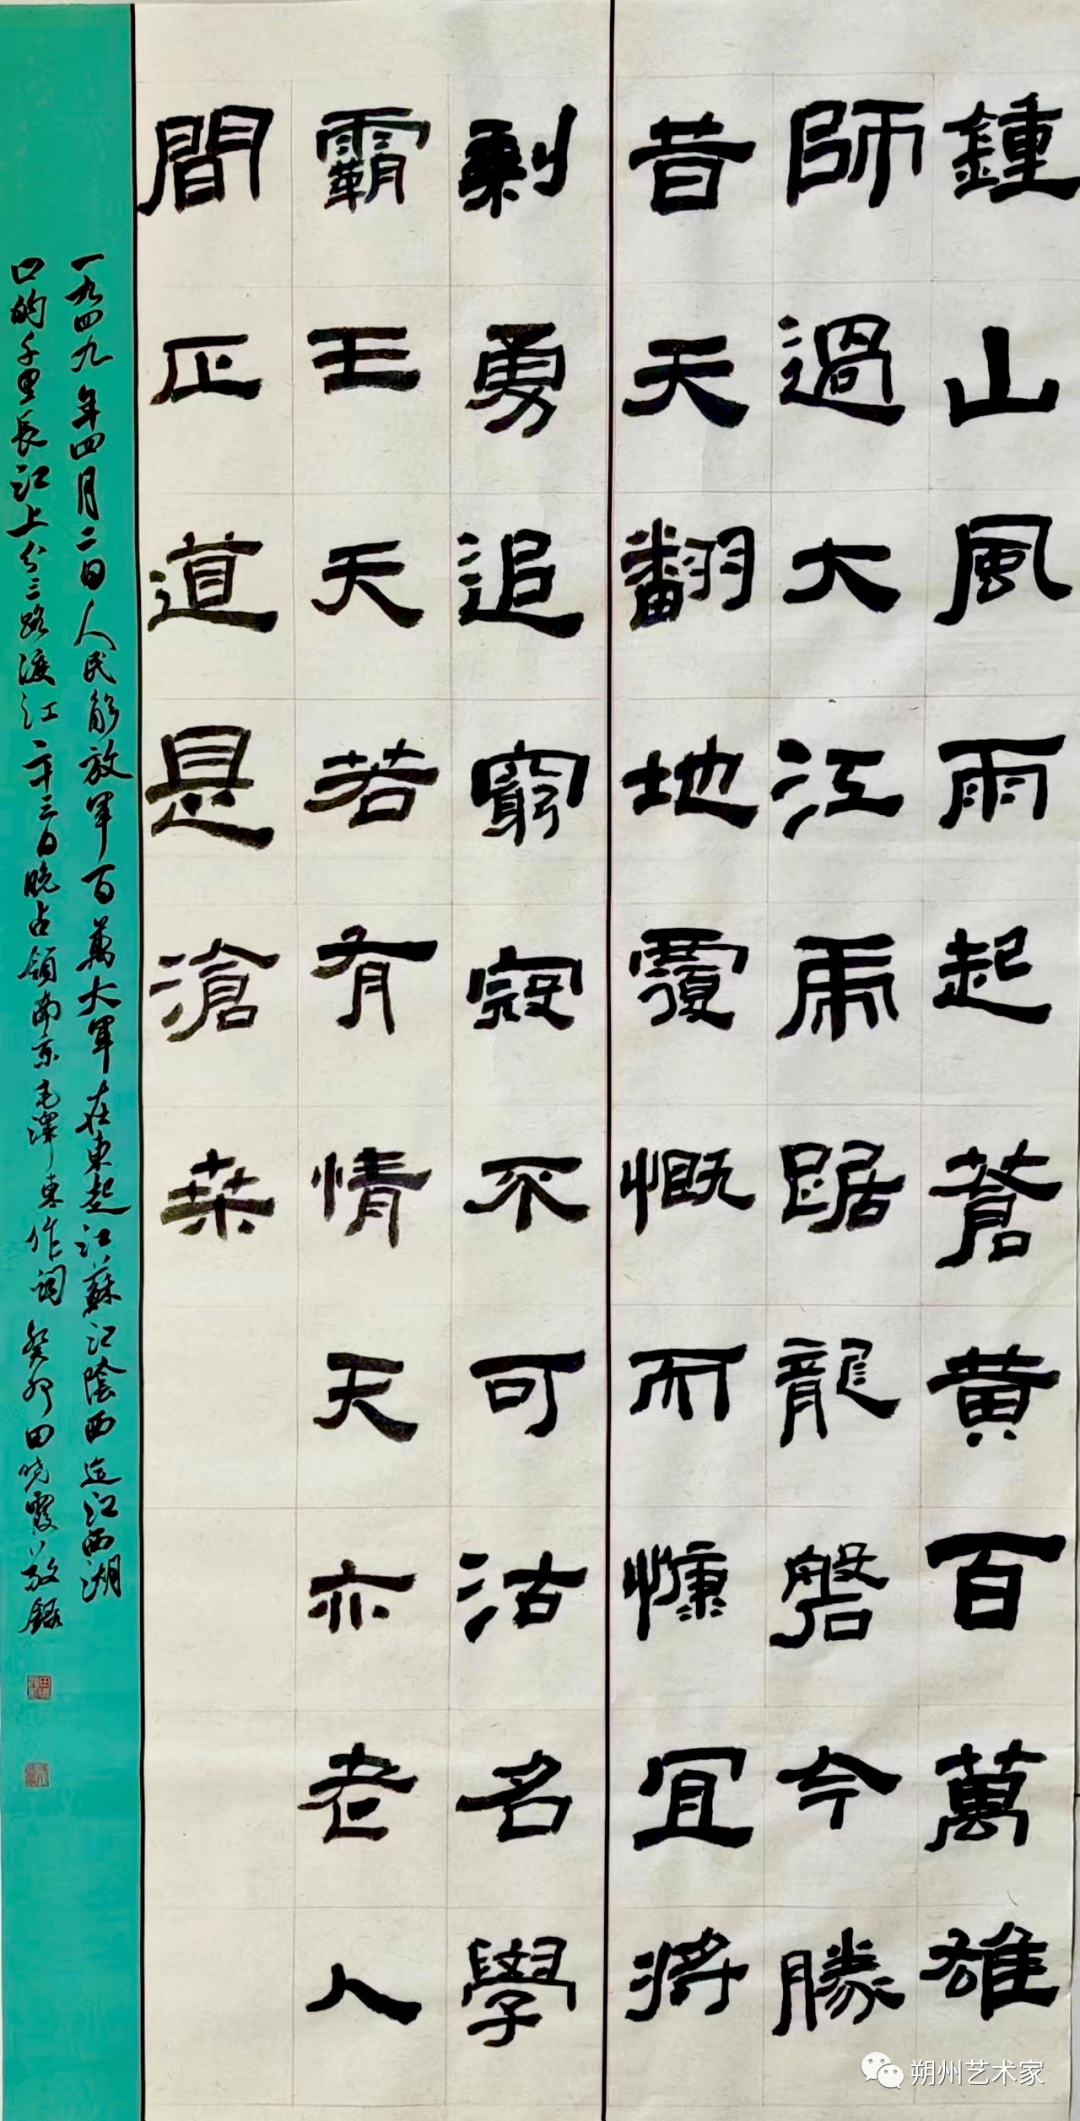 鍾山風雨起蒼黄百萬雄
師過大江虎踞龍磐今勝
昔天翻地覆慨而慷宜將
剩勇追窮寇不可沽名學
霸王天若有情天亦老人
間正道是滄桒
一九四九年四月二日人民解放軍百萬大軍在東起江蘇江陰西迄江西湖
口的千里長江上分三路渡江二十三日晚占領南京毛澤東作詞癸卯田晓霞敬錄
朔州艺术家